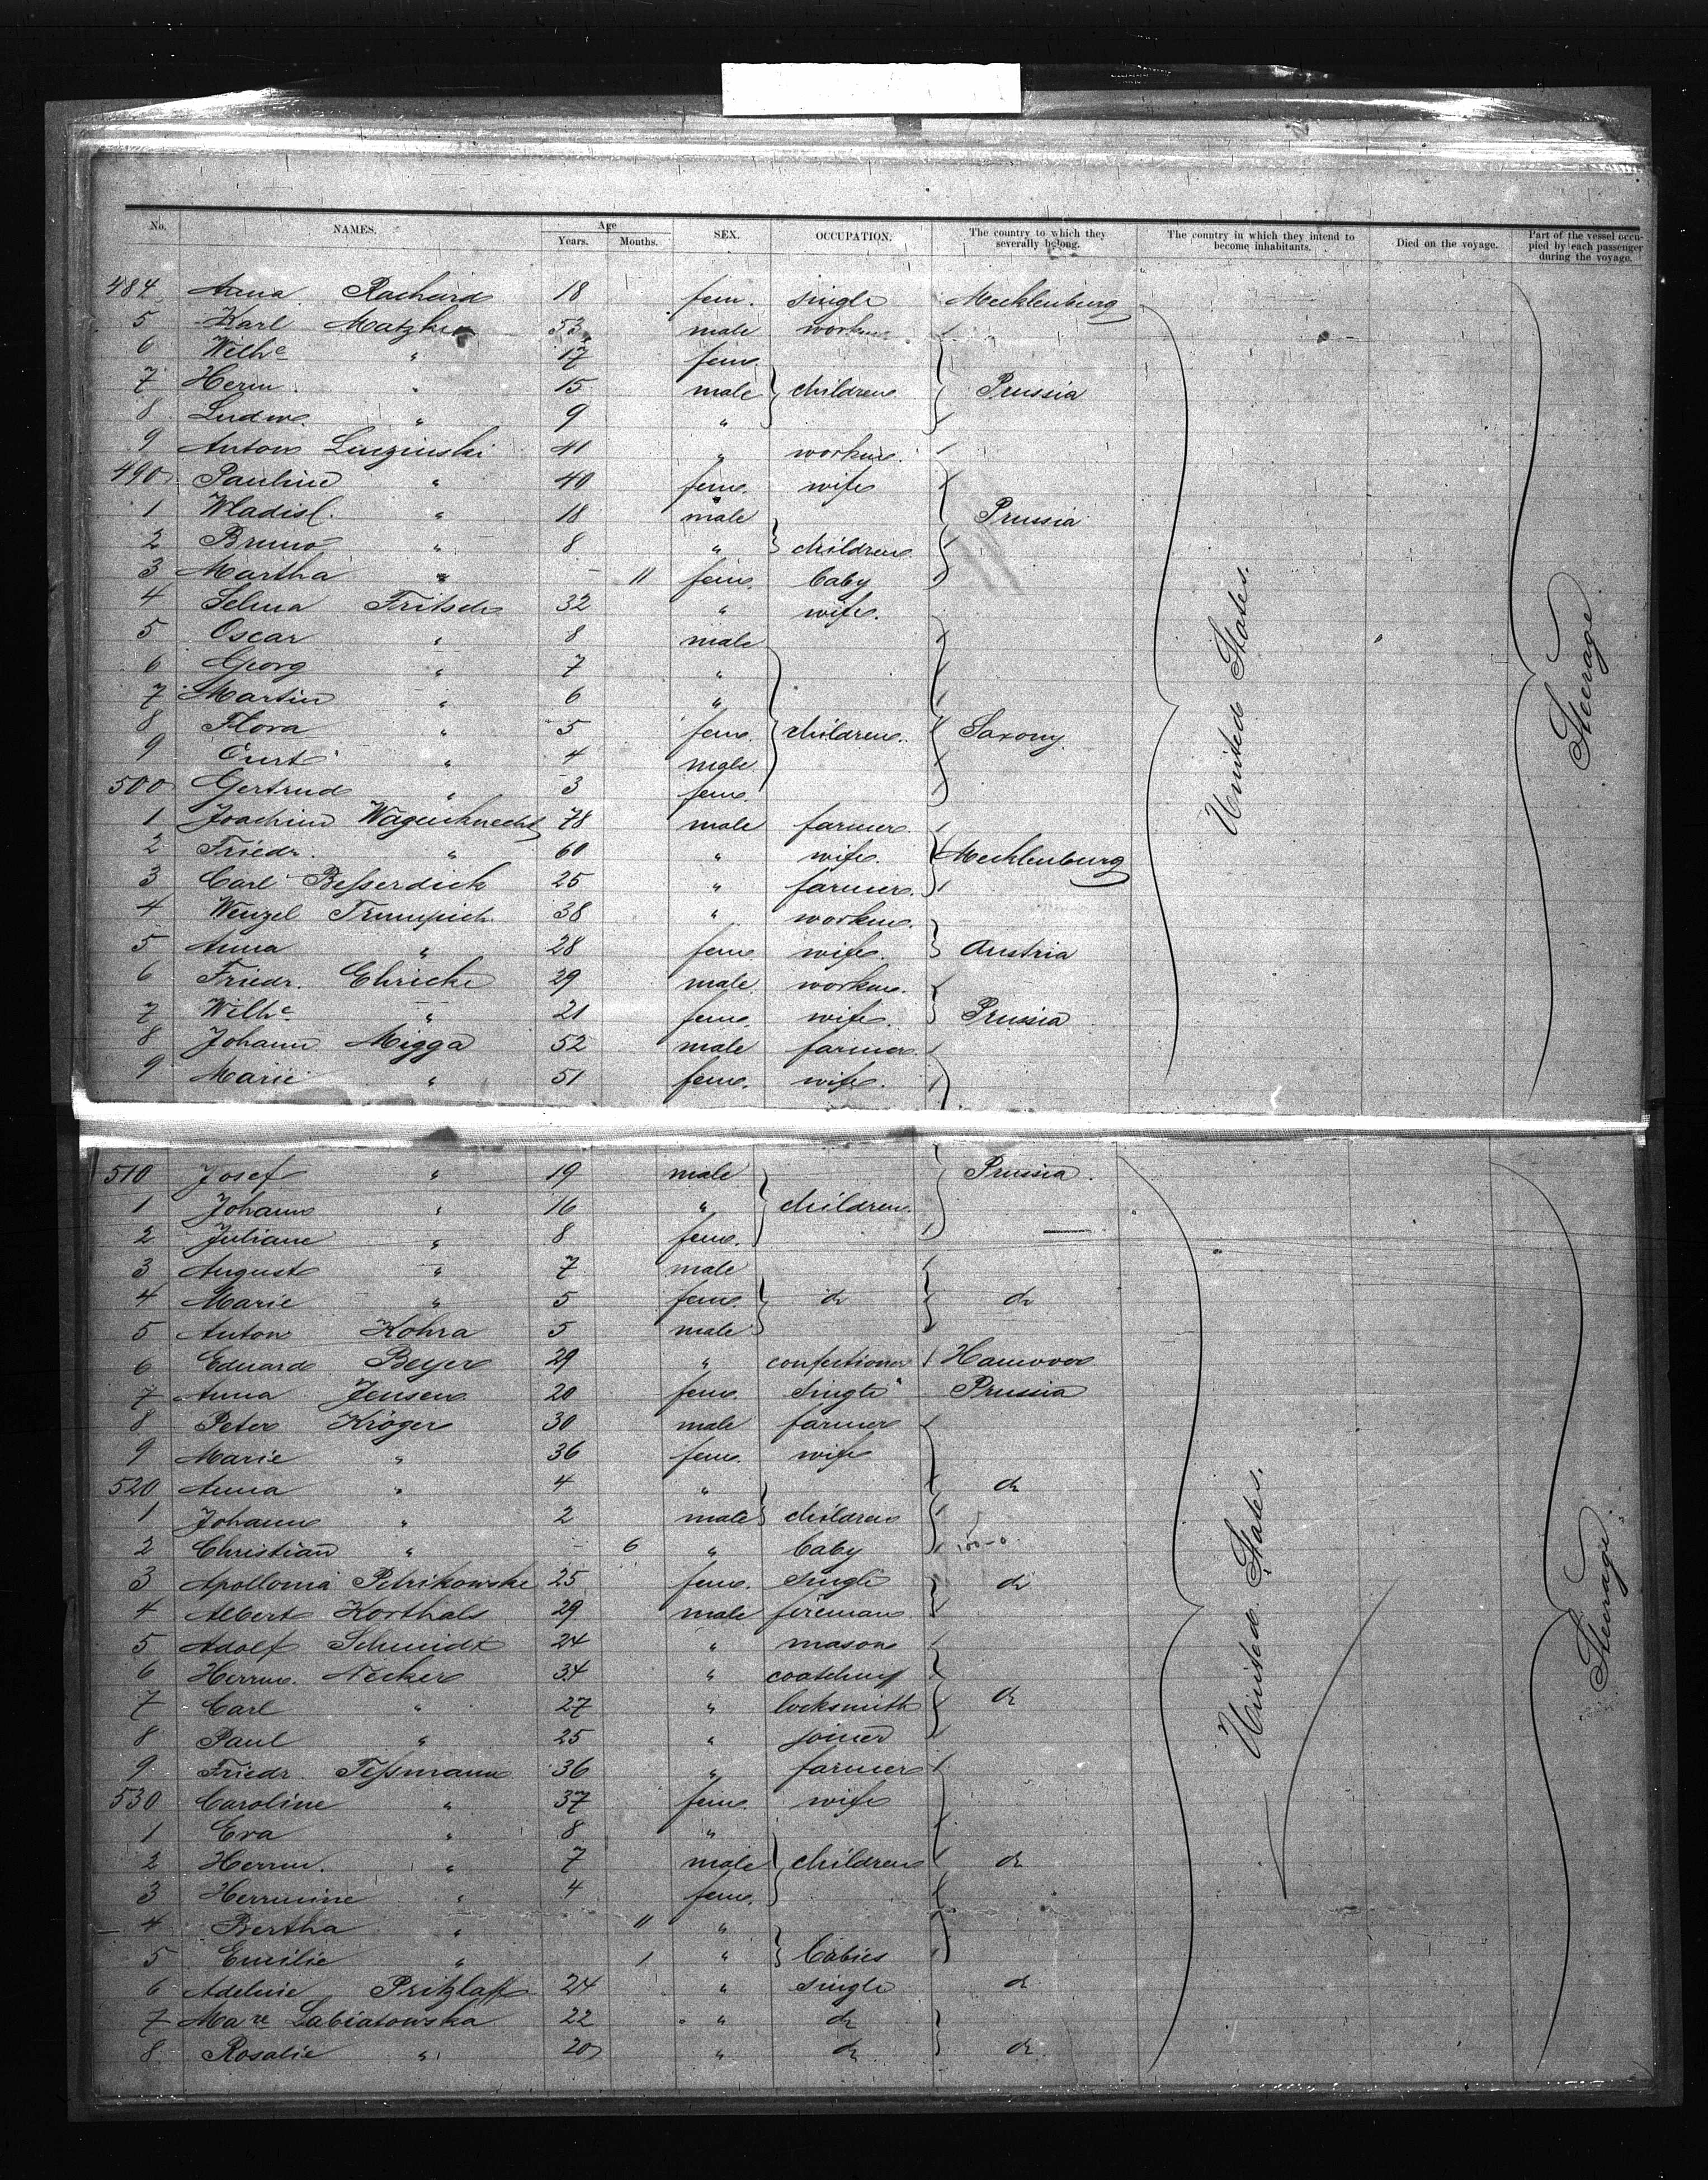 No. NAMES. Age Years. Months. SEX. OCCUPATION. The country to which they severally belong. The country in which they intend to become inhabitants. Died on the voyage. Part of the vessel occupied by each passenger during the voyage.
484 Anna 18 fem. single Mecklenburg
5 Karl 53 male workm.
6 Wilhe " 17 fem.
7 Herm. " 15 male children Prussia
8 Ludw. " 9 "
9 Anton 41 " workm.
490 Pauline " 40 fem. wife
1 Wladisl. " 18 male Prussia
2 Bruno " 8 " children
3 Martha " - 11 fem. baby
4 Selma Fritsch 32 " wife.
5 Oscar " 8 male
6 Georg " 7 "
7 Martin " 6 " United States. Steerage
8 Flora " 5 fem. children. Saxony
9 Curt " 4 male
500 Gertrud " 3 fem.
1 Joachim Wagenknecht 78 male farmer.
2 Friedr. " 60 " wife. Mecklenburg
3 Carl Beßerdich 25 " farmer.
4 Wenzel 38 " workm.
5 Anna " 28 fem. wife. Austria
6 Friedr. Ehricke 29 male workm.
7 Wilhe " 21 fem. wife. Prussia
8 Johann Migga 52 male farmer.
9 Marie " 51 fem. wife.
510 Josef " 19 male Prussia.
1 Johann " 16 " children.
2 Juliane " 8 fem.
3 August " 7 male
4 Marie " 5 fem. do do
5 Anton Kohra 5 male
6 Eduard Beyer 29 " confectioner Hannover
7 Anna Jensen 20 fem. single Prussia
8 Peter Kröger 30 male farmer
9 Marie " 36 fem. wife
520 Anna " 4 " do
1 Johann " 2 male children
2 Christian " - 6 " baby
3 Apollonia Petrikowske 25 fem. single do
4 Albert Korthals 29 male fireman. United States. Steerage.
5 Adolf Schmidt 24 " mason
6 Herrm. Necker 34 "
7 Carl " 27 " locksmith do
8 Paul " 25 " joiner
9 Friedr. Teßmann 36 " farmer
530 Caroline " 37 fem. wife
1 Eva " 8 "
2 Herrm. " 7 male children do
3 Hermine " 4 fem.
4 Bertha " 11 "
5 Emilie " 1 " babies
6 Adeline Pritzlaff 24 " single do
7 Mare Labiatowska 22 " do
8 Rosalie " 20 " do do